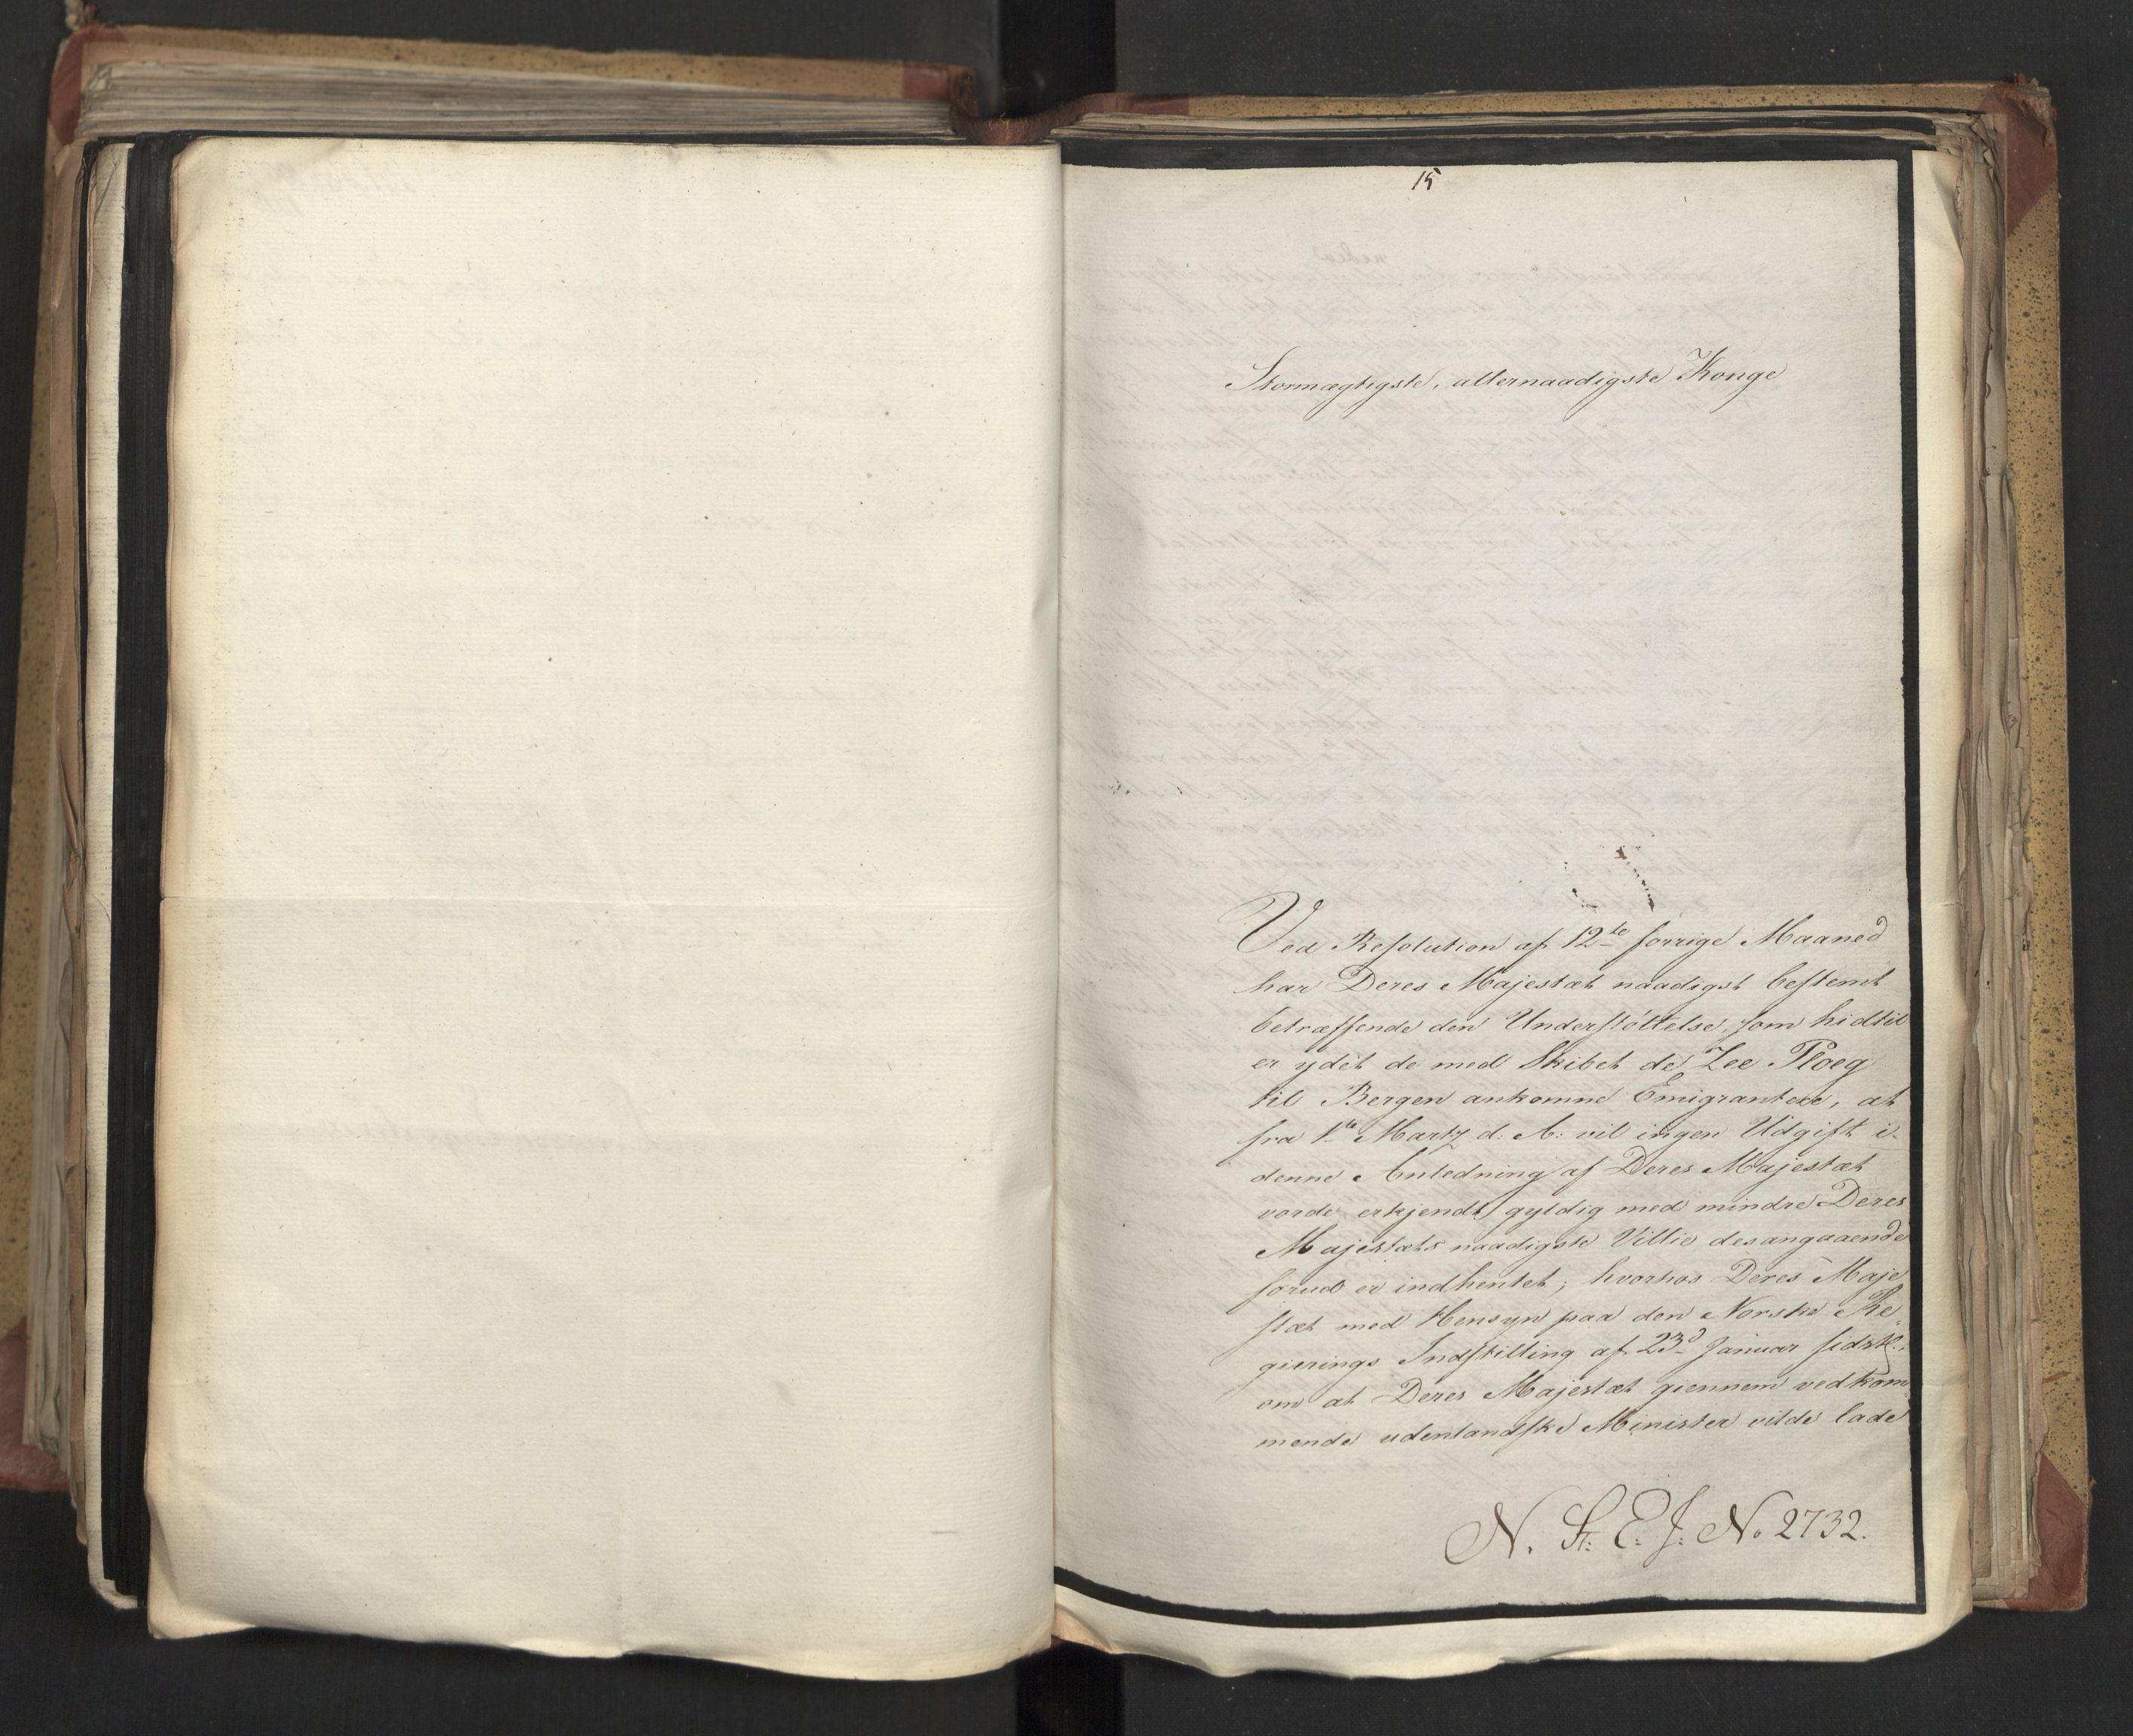 15
Stormægtigste, allernaadigste Konge
Ved Resolution af 12te forrige Maaned
har Deres Majestæt naadigst bestemt
betræffende den Understøttelse, som hidtil
er ydet de med Skibet de Zee Ploeg
til Bergen ankomne Emigrantere, at
fra 1te Martz d. A: vil ingen Udgift i
denne Anledning af Deres Majestæt
vorde erkjendt gyldig med mindre Deres
Majestæts naadigste Villie desangaaende
forud er indhentet, hvorhos Deres Maje
stæt med Hensyn paa den Norske Re,
gierings Indstilling af 23d Januar sidstl.,
om at Deres Majestæt giennem vedkom
mende udenlandske Minister vilde lade
N. St: E. J: No 2732.